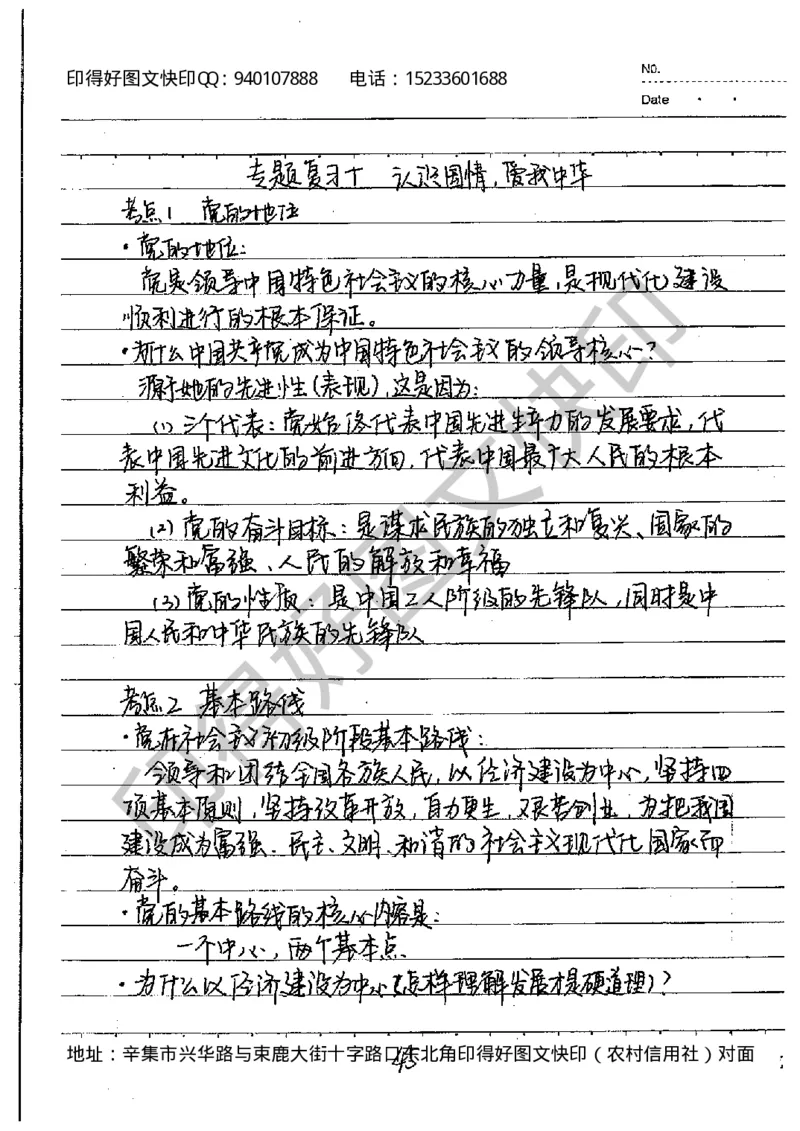 印得好图文快印QQ：940107888 电话：15233601688
No.
Date
专题复习十 认识国情，爱我中华
考点1 党的地位
·党的地位：
党是领导中国特色社会主义的核心力量，是现代化建设
顺利进行的根本保证。
·为什么中国共产党成为中国特色社会主义的领导核心？
源于她的先进性（表现），这是因为：
(1) 三个代表：党始终代表中国先进生产力的发展要求，代
表中国先进文化的前进方向，代表中国最广大人民的根本
利益。
(2) 党的奋斗目标：是谋求民族的独立和复兴、国家的
繁荣和富强、人民的解放和幸福
(3) 党的性质：是中国工人阶级的先锋队，同时是中
国人民和中华民族的先锋队
考点2 基本路线
·党在社会主义初级阶段基本路线：
领导和团结全国各族人民，以经济建设为中心，坚持四
项基本原则，坚持改革开放，自力更生，艰苦创业，为把我国
建设成为富强、民主、文明、和谐的社会主义现代化国家而
奋斗。
·党的基本路线的核心内容是：
一个中心，两个基本点
·为什么以经济建设为中心（怎样理解发展才是硬道理）？
地址：辛集市兴华路与束鹿大街十字路口东北角印得好图文快印（农村信用社）对面
45
印得好图文快印